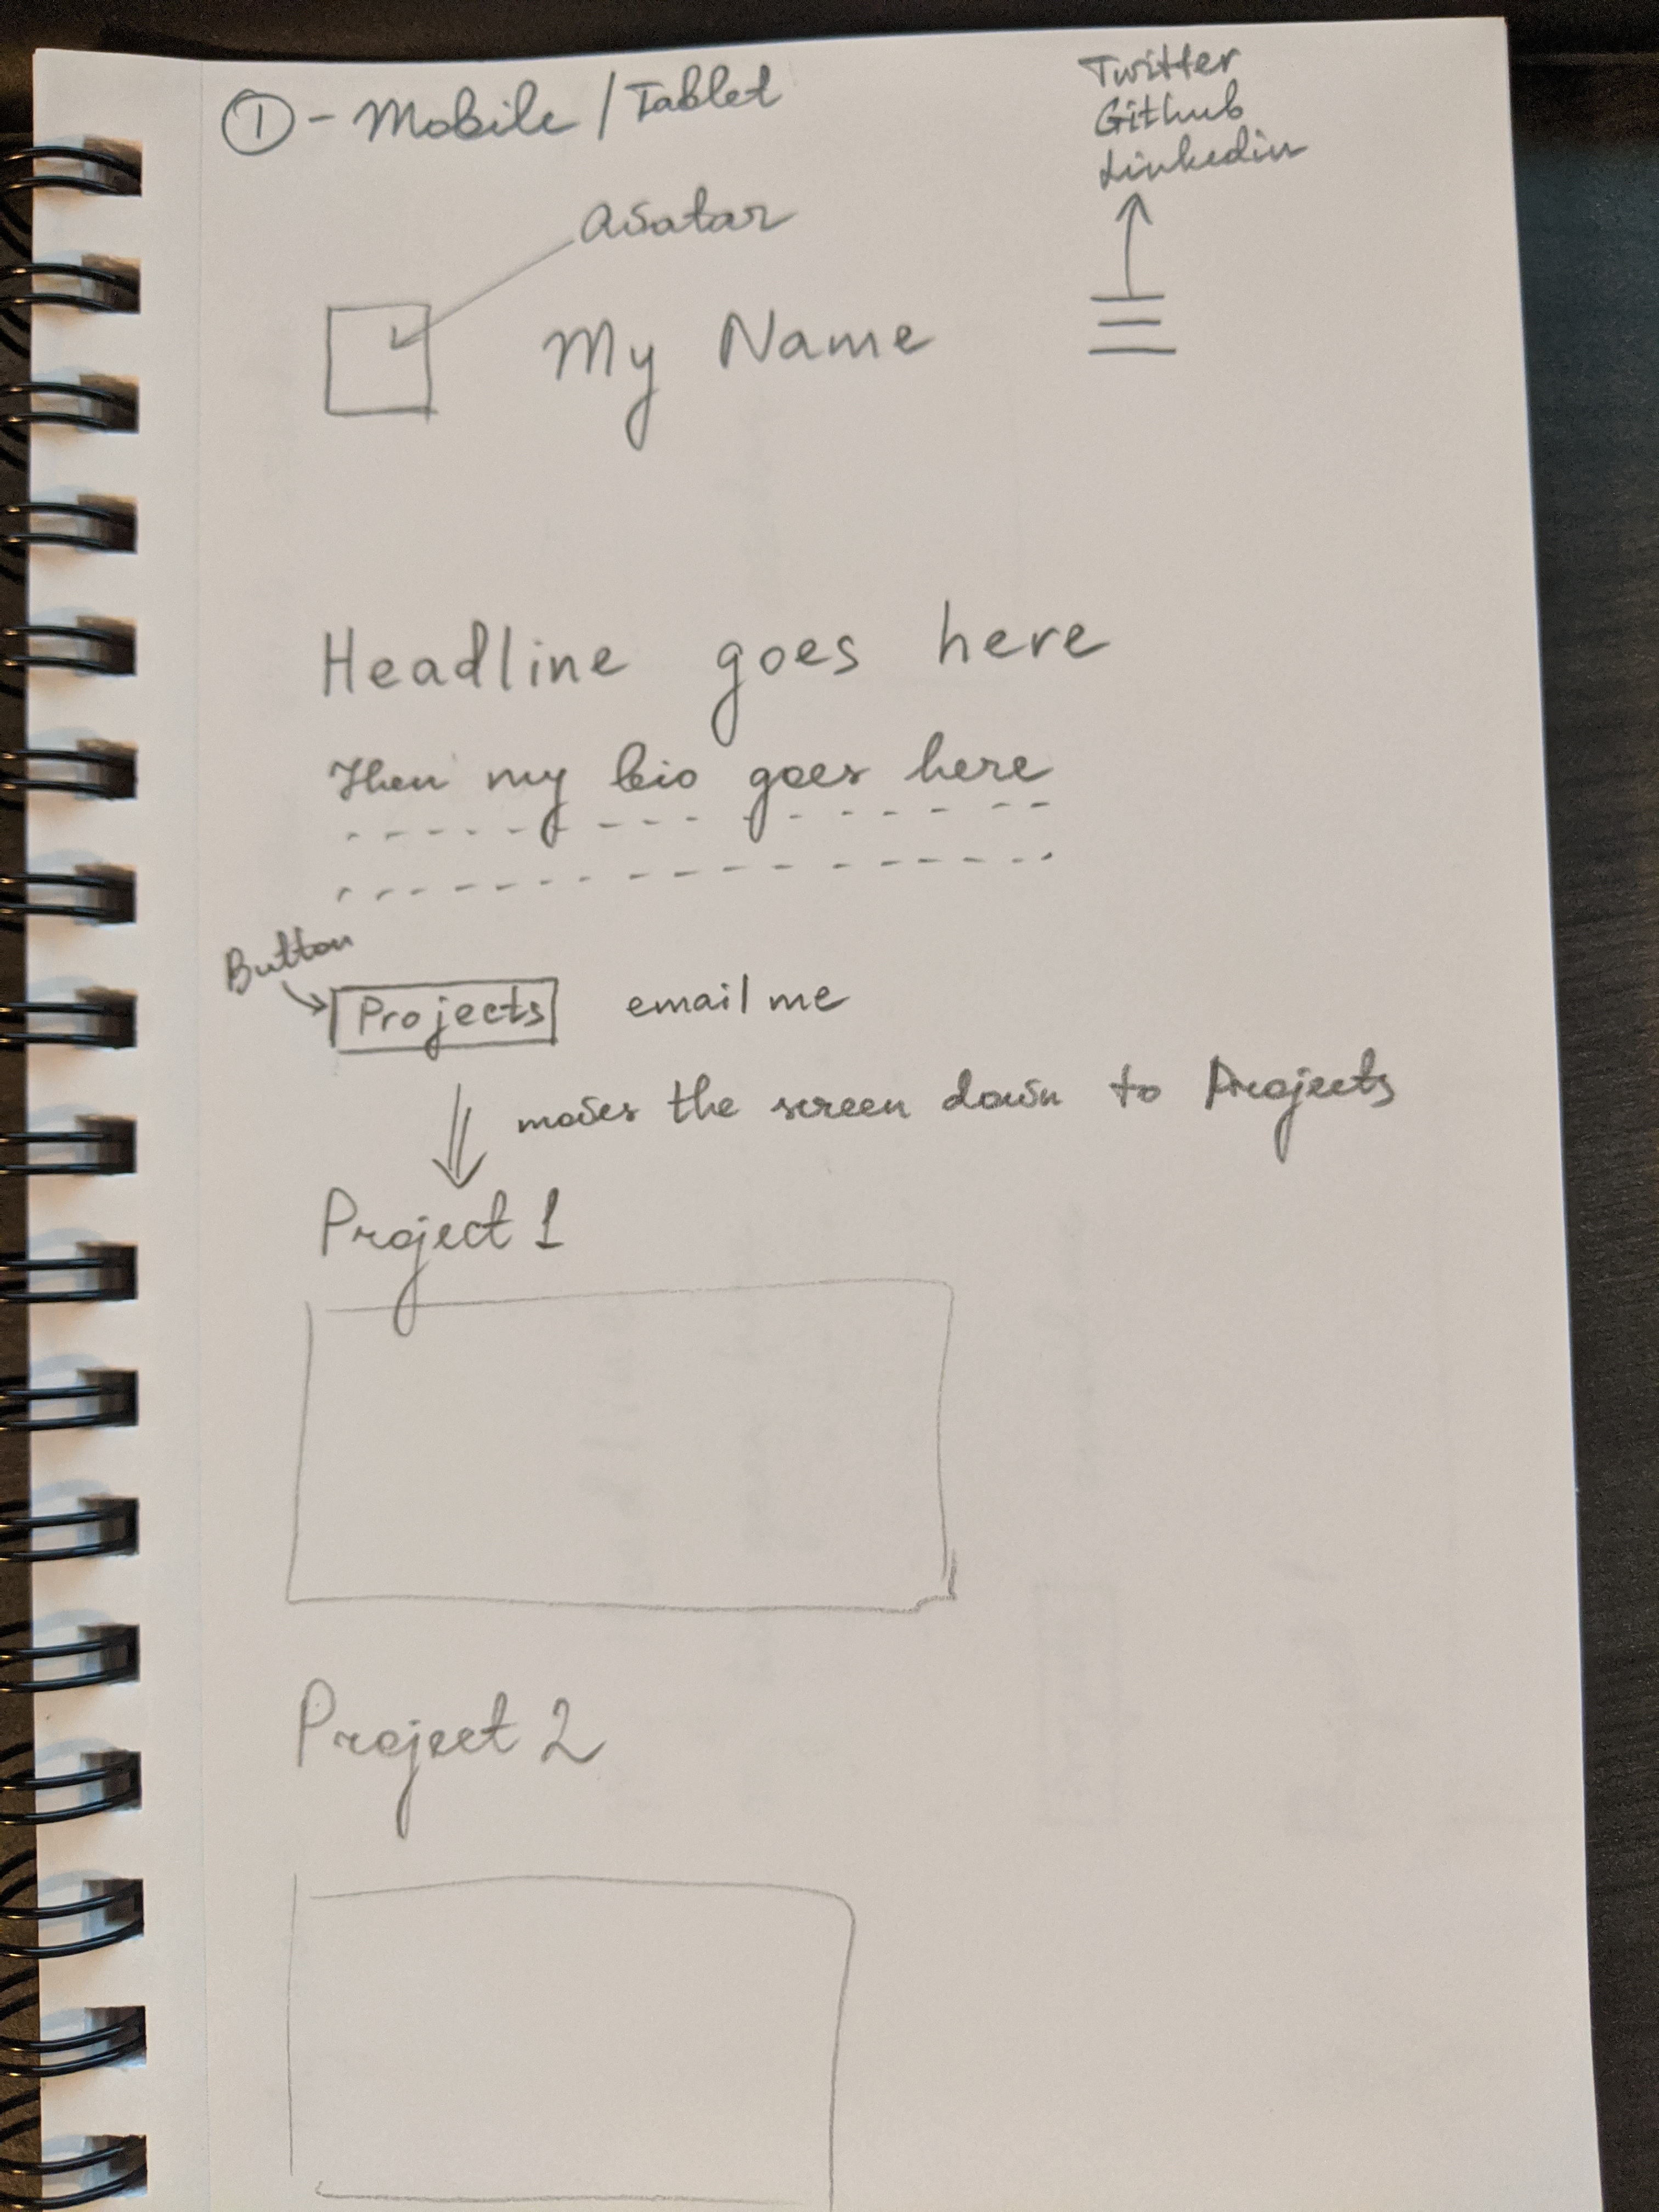 ① - Mobile / Tablet
Twitter
Github
Linkedin
avatar
My Name
Headline goes here
Then my bio goes here
Button
Projects
email me
moves the screen down to Projects
Project 1
Project 2